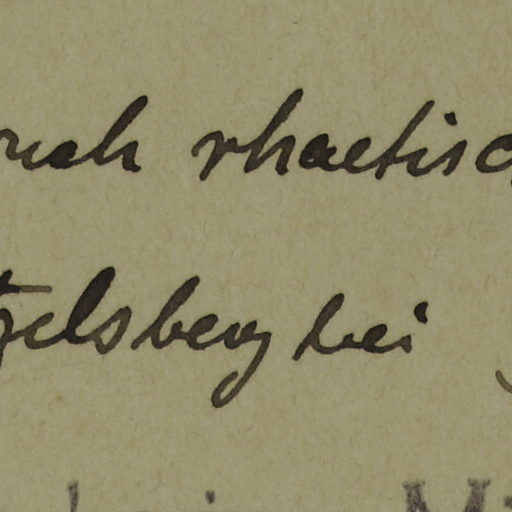 ruch rhaetisc
tzelsberg bei